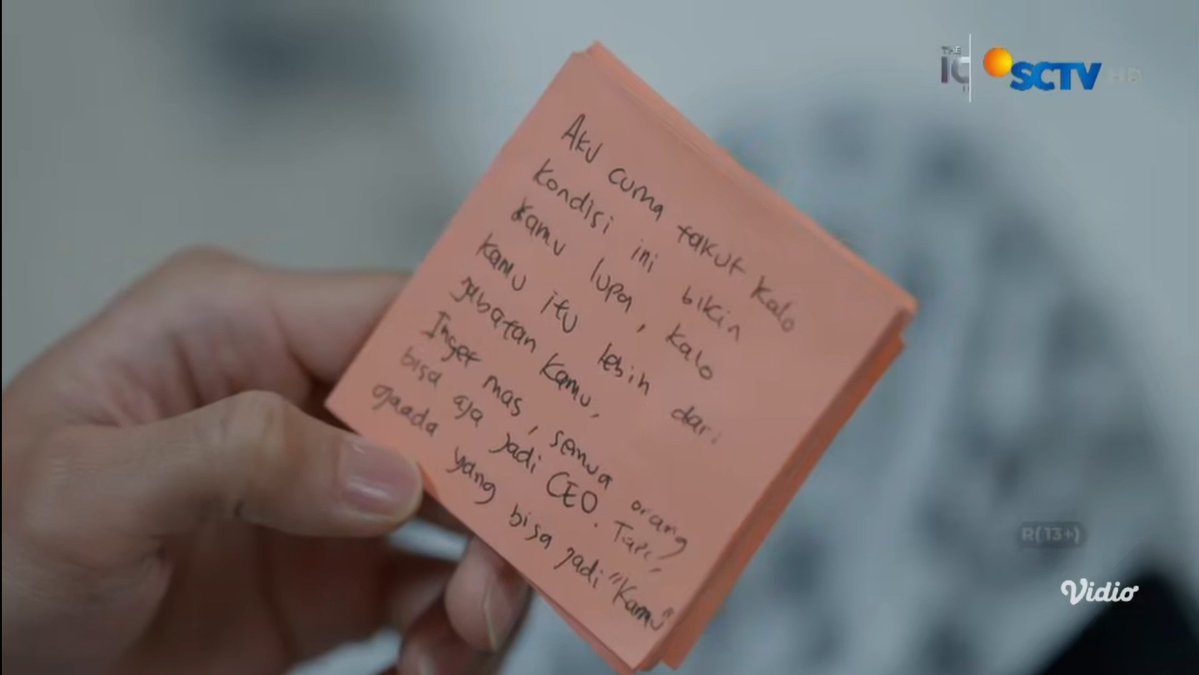 THE
SCTV HD
Aku cuma takut kalo
kondisi ini bikin
kamu lupa, kalo
kamu itu lebih dari
jabatan kamu,
Inget mas, semua orang
bisa aja jadi CEO. Tapi,
gaada yang bisa jadi "Kamu"
R(13+)
Vidio